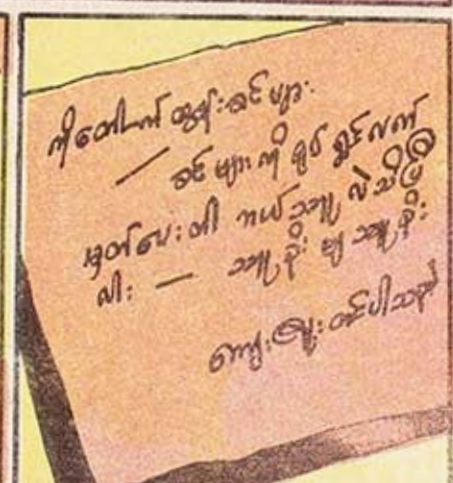 ကိုတေါက်ထွန်းခင်ဗျား
— ခင်ဗျားကို ချုပ် ရှင်လက်
မှတ်ပေးတါ ဘယ်သူ လဲသိပြီ
လါး — သူခိုး ဗျ သူခိုး
ကျေးဇူးတင်ပါသည်